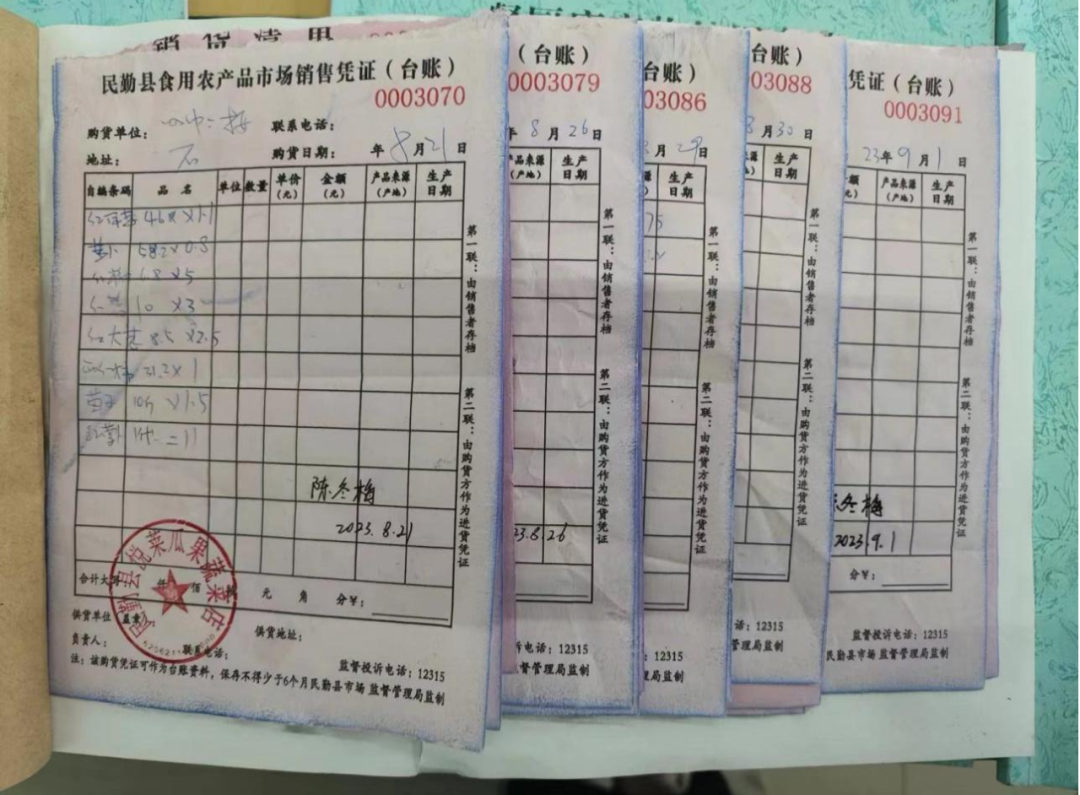 销货清单
民勤县食用农产品市场销售凭证（台账）
0003070
购货单位：
联系电话：
地址：
购货日期： 年 8 月 21 日
自编条码 品名 单位 数量 单价（元） 金额（元） 产品来源（产地） 生产日期
×1.1
58.2×0.8
6.8×5
10 ×3
红大 8.5 ×2.5
21.2×1
×1.5
=11
陈冬梅
2023.8.21
合计大写 仟 佰 元 角 分￥：
供货单位 盖章
供货地址：
负责人：
联系电话：
监督投诉电话：12315
注：该购货凭证可作为台账资料，保存不得少于6个月民勤县市场监督管理局监制
民勤县悦菜瓜果蔬菜店
第一联：由销售者存档
第二联：由购货方作为进货凭证
（台账）
0003079
年 8 月 26 日
产品来源（产地） 生产日期
23.8.26
第一联：由销售者存档
第二联：由购货方作为进货凭证
电话：12315
督管理局监制
台账）
03086
月 29 日
生产日期
75
第一联：由销售者存档
第二联：由购货方作为进货凭证
：12315
管理局监制
台账）
03088
8 月 30 日
生产日期
第一联：由销售者存档
第二联：由购货方作为进货凭证
话：12315
管理局监制
凭证（台账）
0003091
23年 9 月 1 日
额 产品来源（产地） 生产日期
元）
冬梅
2023.9.1
分￥：
第一联：由销售者存档
第二联：由购货方作为进货凭证
监督投诉电话：12315
民勤县市场监督管理局监制